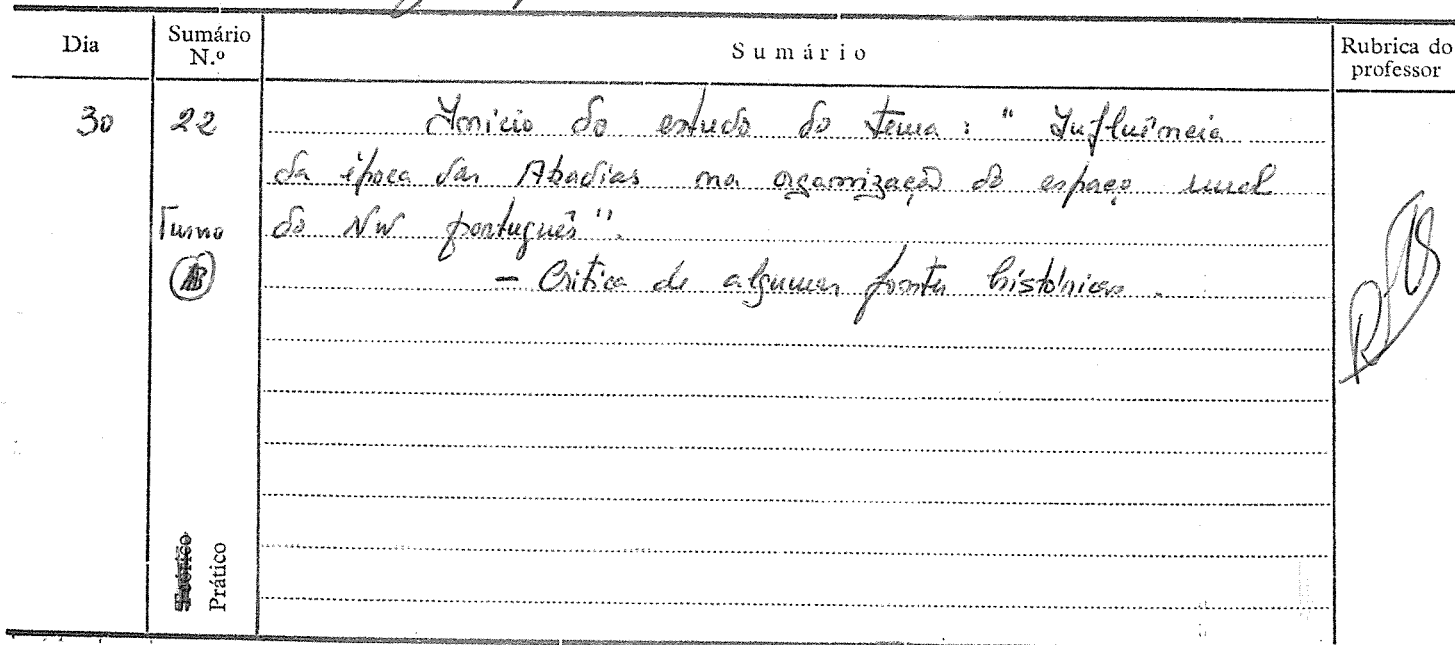 Dia
Sumário N.º
Sumário
Rubrica do professor
30
22
Início do estudo do tema : " Influência
da época das Abadias na organização do espaço rural
Turno
do NW português".
- Crítica de algumas fontes históricas.
Teórico
Prático